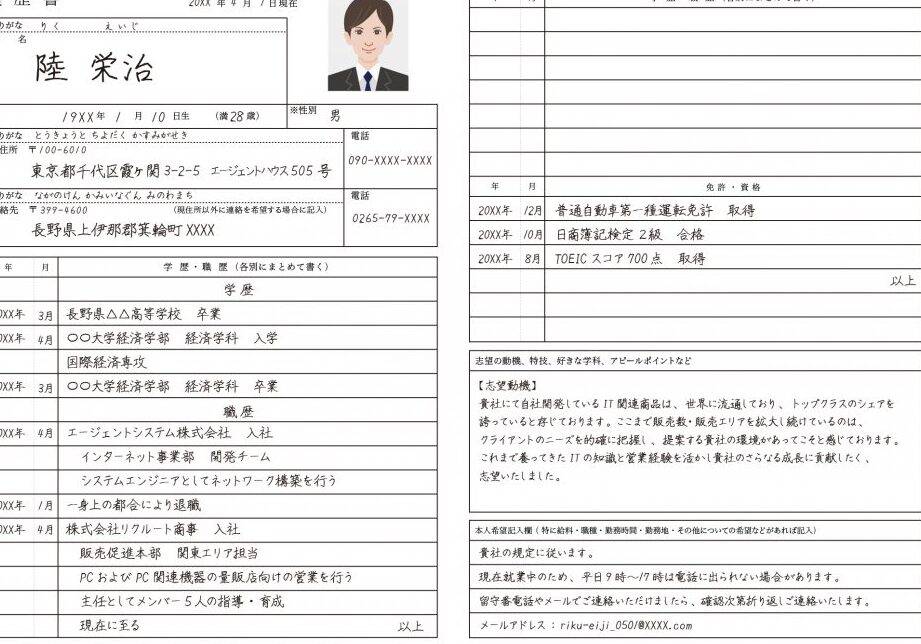 歴書
20XX 年 4 月 1 日現在
りく えいじ
名
陸 栄治
19XX年 1 月 10 日生 (満28歳)
※性別 男
がな とうきょうと ちよだく かすみがせき
住所 〒100-6010
東京都千代区霞ヶ関3-2-5 エージェントハウス505号
電話
090-XXXX-XXXX
がな ながのけん かみいなぐん みのわまち
絡先 〒399-4600 (現住所以外に連絡を希望する場合に記入)
長野県上伊那郡箕輪町XXXX
電話
0265-79-XXXX
年 月 学歴・職歴(各別にまとめて書く)
学歴
XX年 3月 長野県△△高等学校 卒業
XX年 4月 〇〇大学経済学部 経済学科 入学
国際経済専攻
XX年 3月 〇〇大学経済学部 経済学科 卒業
職歴
XX年 4月 エージェントシステム株式会社 入社
インターネット事業部 開発チーム
システムエンジニアとしてネットワーク構築を行う
XX年 1月 一身上の都合により退職
XX年 4月 株式会社リクルート商事 入社
販売促進本部 関東エリア担当
PCおよびPC関連機器の量販店向けの営業を行う
主任としてメンバー5人の指導・育成
現在に至る 以上
年 月 免許・資格
20XX年 12月 普通自動車第一種運転免許 取得
20XX年 10月 日商簿記検定2級 合格
20XX年 8月 TOEICスコア700点 取得
以上
志望の動機、特技、好きな学科、アピールポイントなど
【志望動機】
貴社にて自社開発しているIT関連商品は、世界に流通しており、トップクラスのシェアを
誇っていると存じております。ここまで販売数・販売エリアを拡大し続けているのは、
クライアントのニーズを的確に把握し、提案する貴社の環境があってこそと感じております。
これまで養ってきたITの知識と営業経験を活かし貴社のさらなる成長に貢献したく、
志望いたしました。
本人希望記入欄(特に給料・職種・勤務時間・勤務地・その他についての希望などがあれば記入)
貴社の規定に従います。
現在就業中のため、平日9時〜17時は電話に出られない場合があります。
留守番電話やメールでご連絡いただけましたら、確認次第折り返しご連絡いたします。
メールアドレス：riku-eiji_0501@XXXX.com